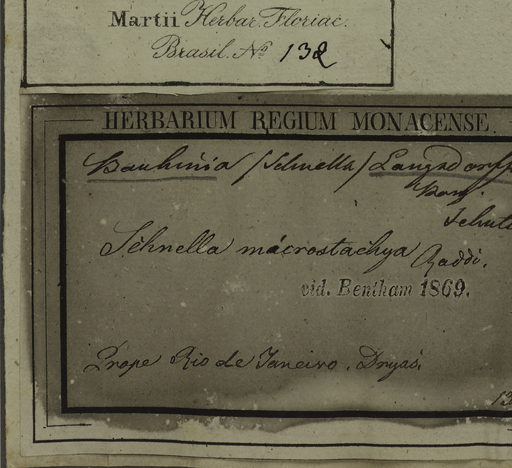 Martii Herbar. Florae.
Brasil. No 132
HERBARIUM REGIUM MONACENSE.
Bauhinia (Schnella) Langsdorff
Bong.
Schnella macrostachya Raddi.
vid. Bentham 1869.
Prope Rio de Janeiro. Dryas.
13